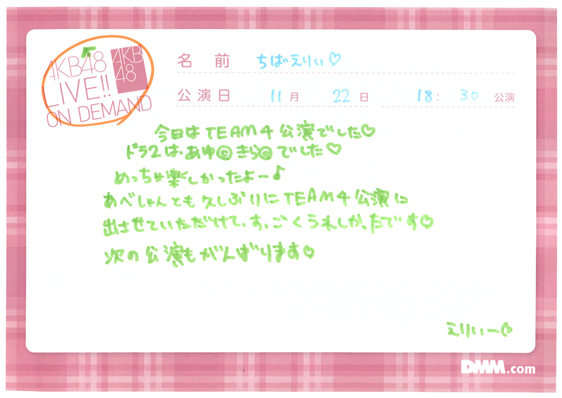 AKB48
LIVE!!
ON DEMAND
AKB
48
名前 ちばえりい♡
公演日 11月 22日 18:30 公演
今日はTEAM4公演でした♡
ドラ2は、あゆ©きら©でした♡
めっちゃ楽しかったよー♪
あべしゃんとも久しぶりにTEAM4公演に
出させていただけて、す、ごくうれしかったです♡
次の公演もがんばります♡
えりぃー♡
DMM.com